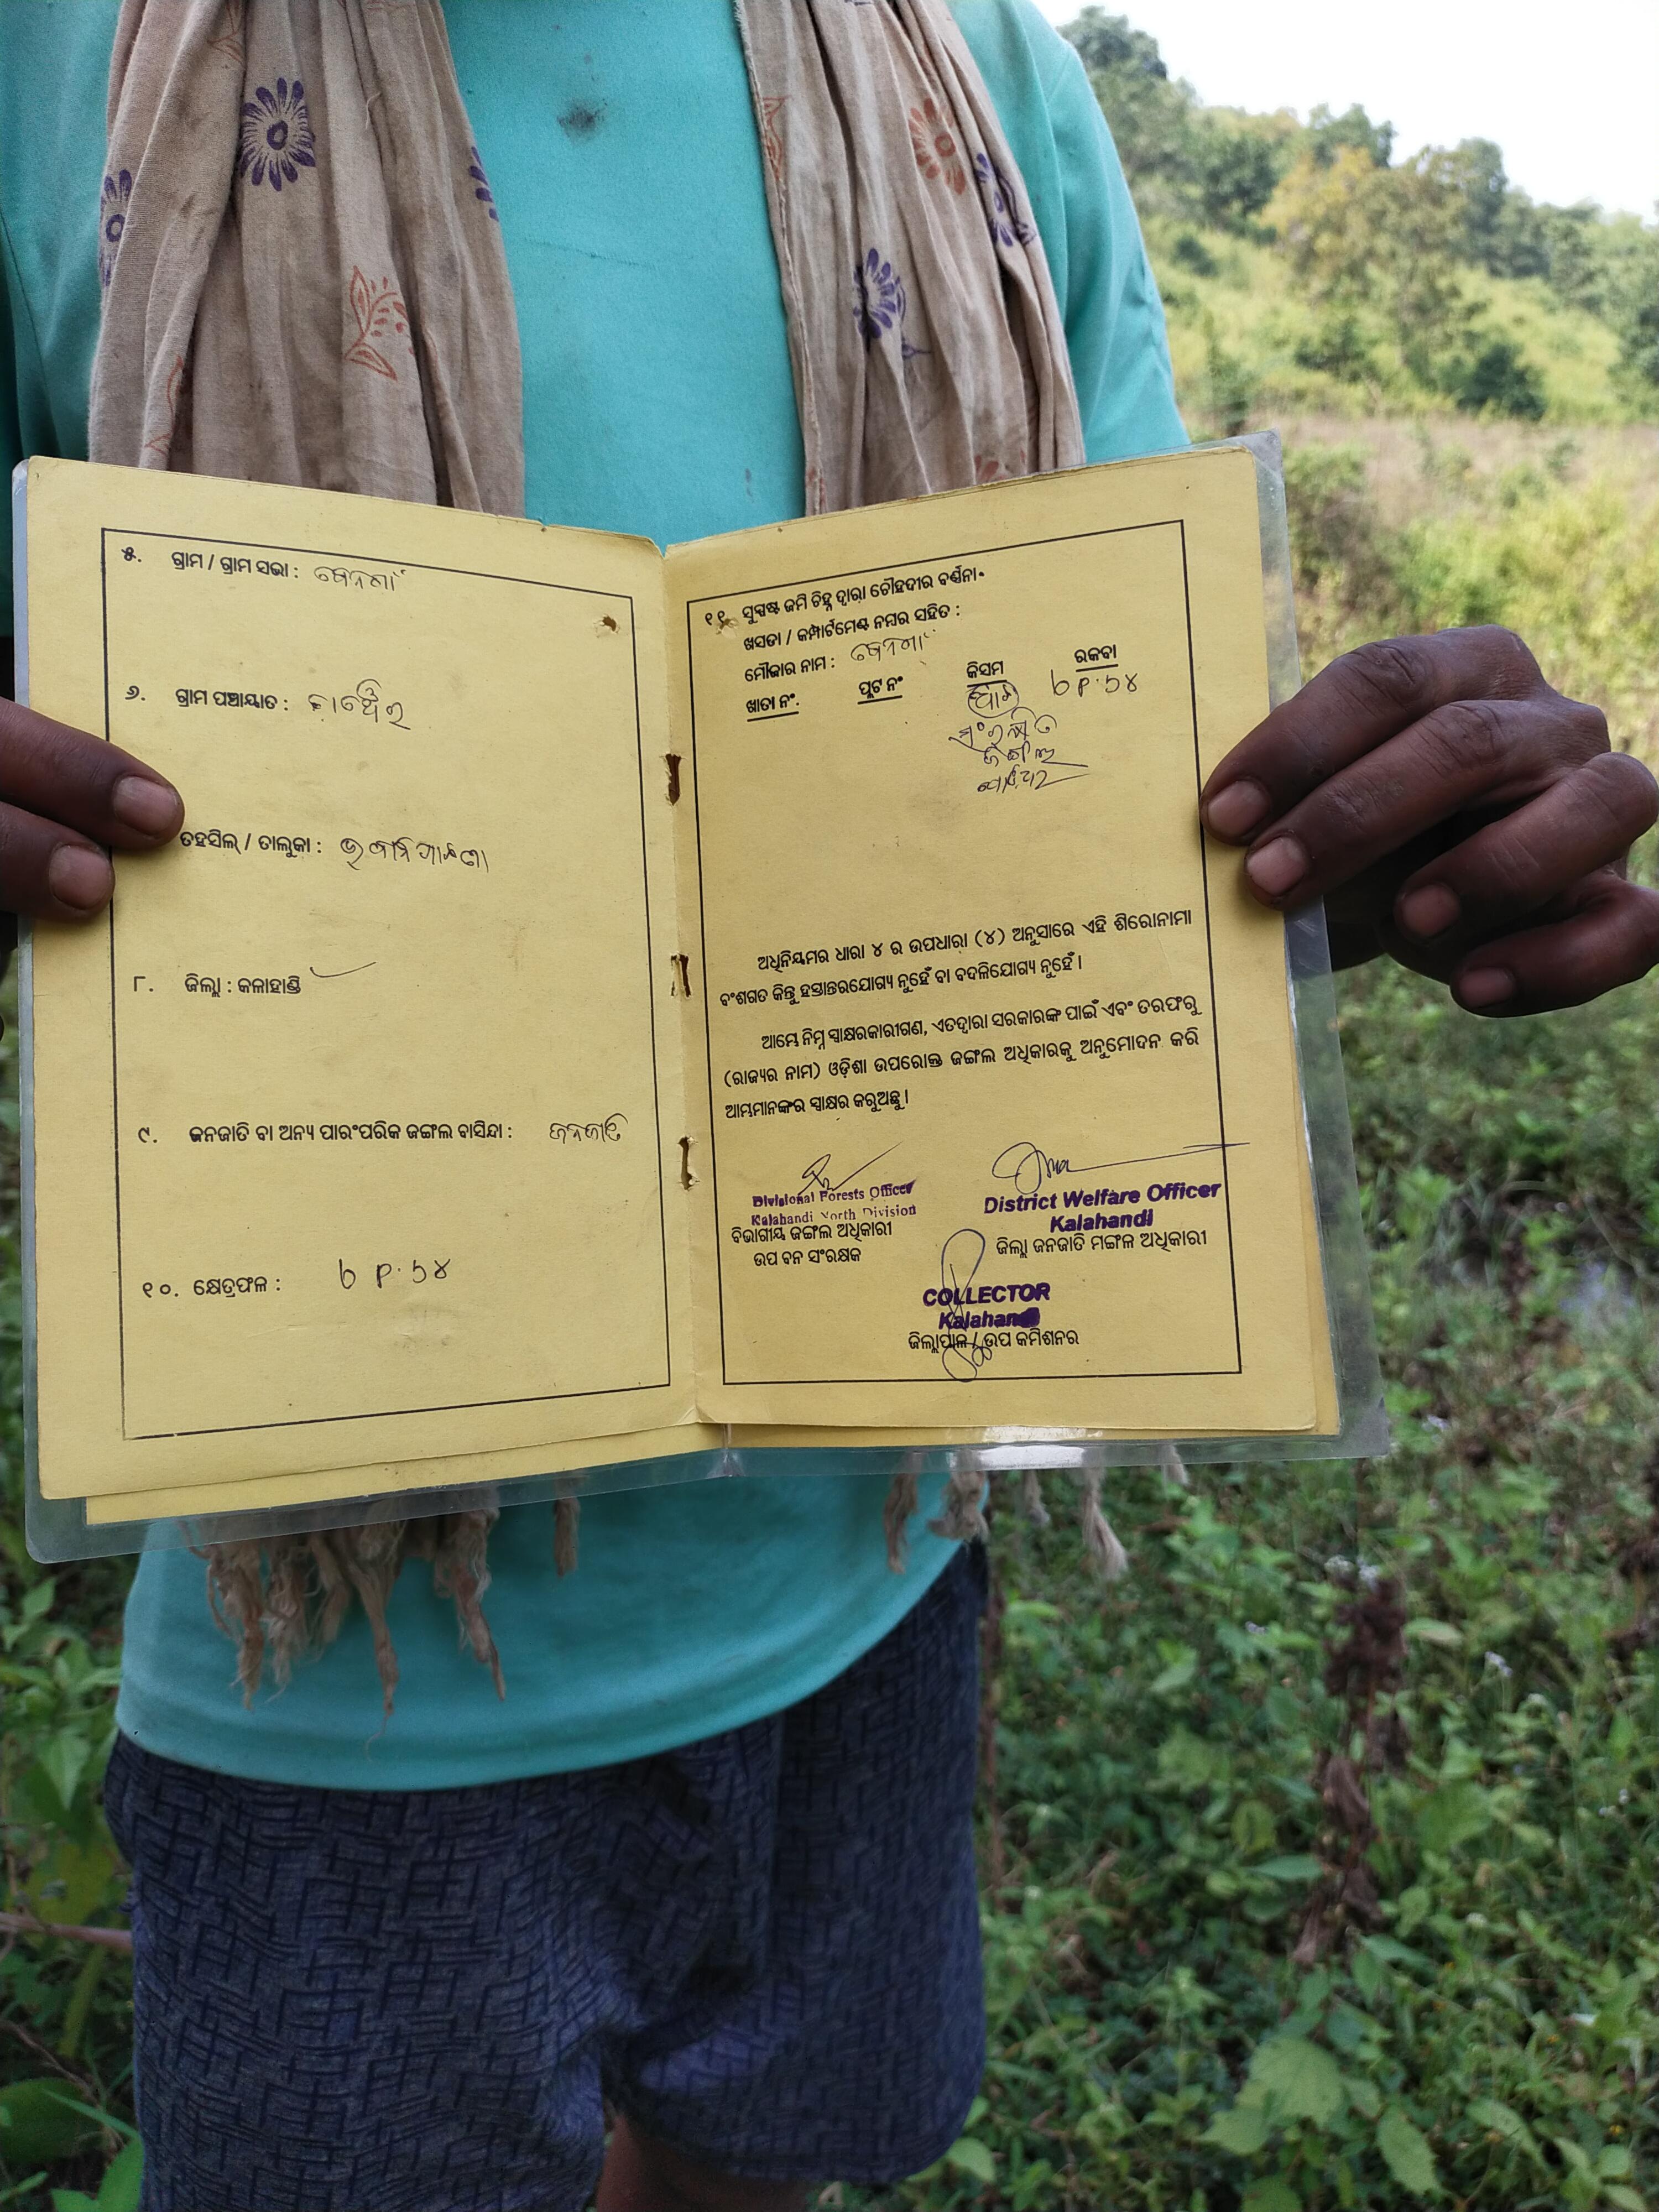 ୫. ଗ୍ରାମ / ଗ୍ରାମ ସଭା :
୬. ଗ୍ରାମ ପଞ୍ଚାୟାତ :
ତହସିଲ୍ / ତାଲୁକା : ଭବାନିପାଟଣା
୮. ଜିଲ୍ଲା : କଳାହାଣ୍ଡି
୯. ଜନଜାତି ବା ଅନ୍ୟ ପାରଂପରିକ ଜଙ୍ଗଲ ବାସିନ୍ଦା : ଜନଜାତି
୧୦. କ୍ଷେତ୍ରଫଳ :
୧୧. ସୁସ୍ପଷ୍ଟ ଜମି ଚିହ୍ନ ଦ୍ୱାରା ଚୌହଦୀର ବର୍ଣ୍ଣନା
ଖସଡା / କମ୍ପାର୍ଟମେଣ୍ଟ ନମ୍ବର ସହିତ :
ମୌଜାର ନାମ :
ଖାତା ନଂ. ପ୍ଲଟ ନଂ କିସମ ରକବା
ସଂରକ୍ଷିତ
ଜଙ୍ଗଲ
ଅଧିନିୟମର ଧାରା ୪ ର ଉପଧାରା (୪) ଅନୁସାରେ ଏହି ଶିରୋନାମା
ବଂଶଗତ କିନ୍ତୁ ହସ୍ତାନ୍ତରଯୋଗ୍ୟ ନୁହେଁ ବା ବଦଳିଯୋଗ୍ୟ ନୁହେଁ ।
ଆମ୍ଭେ ନିମ୍ନ ସ୍ୱାକ୍ଷରକାରୀଗଣ, ଏତଦ୍ୱାରା ସରକାରଙ୍କ ପାଇଁ ଏବଂ ତରଫରୁ
(ରାଜ୍ୟର ନାମ) ଓଡ଼ିଶା ଉପରୋକ୍ତ ଜଙ୍ଗଲ ଅଧିକାରକୁ ଅନୁମୋଦନ କରି
ଆମ୍ଭମାନଙ୍କର ସ୍ୱାକ୍ଷର କରୁଅଛୁ ।
Divisional Forests Officer
Kalahandi North Division
ବିଭାଗୀୟ ଜଙ୍ଗଲ ଅଧିକାରୀ
ଉପ ବନ ସଂରକ୍ଷକ
District Welfare Officer
Kalahandi
ଜିଲ୍ଲା ଜନଜାତି ମଙ୍ଗଳ ଅଧିକାରୀ
COLLECTOR
Kalahandi
ଜିଲ୍ଲାପାଳ / ଉପ କମିଶନର